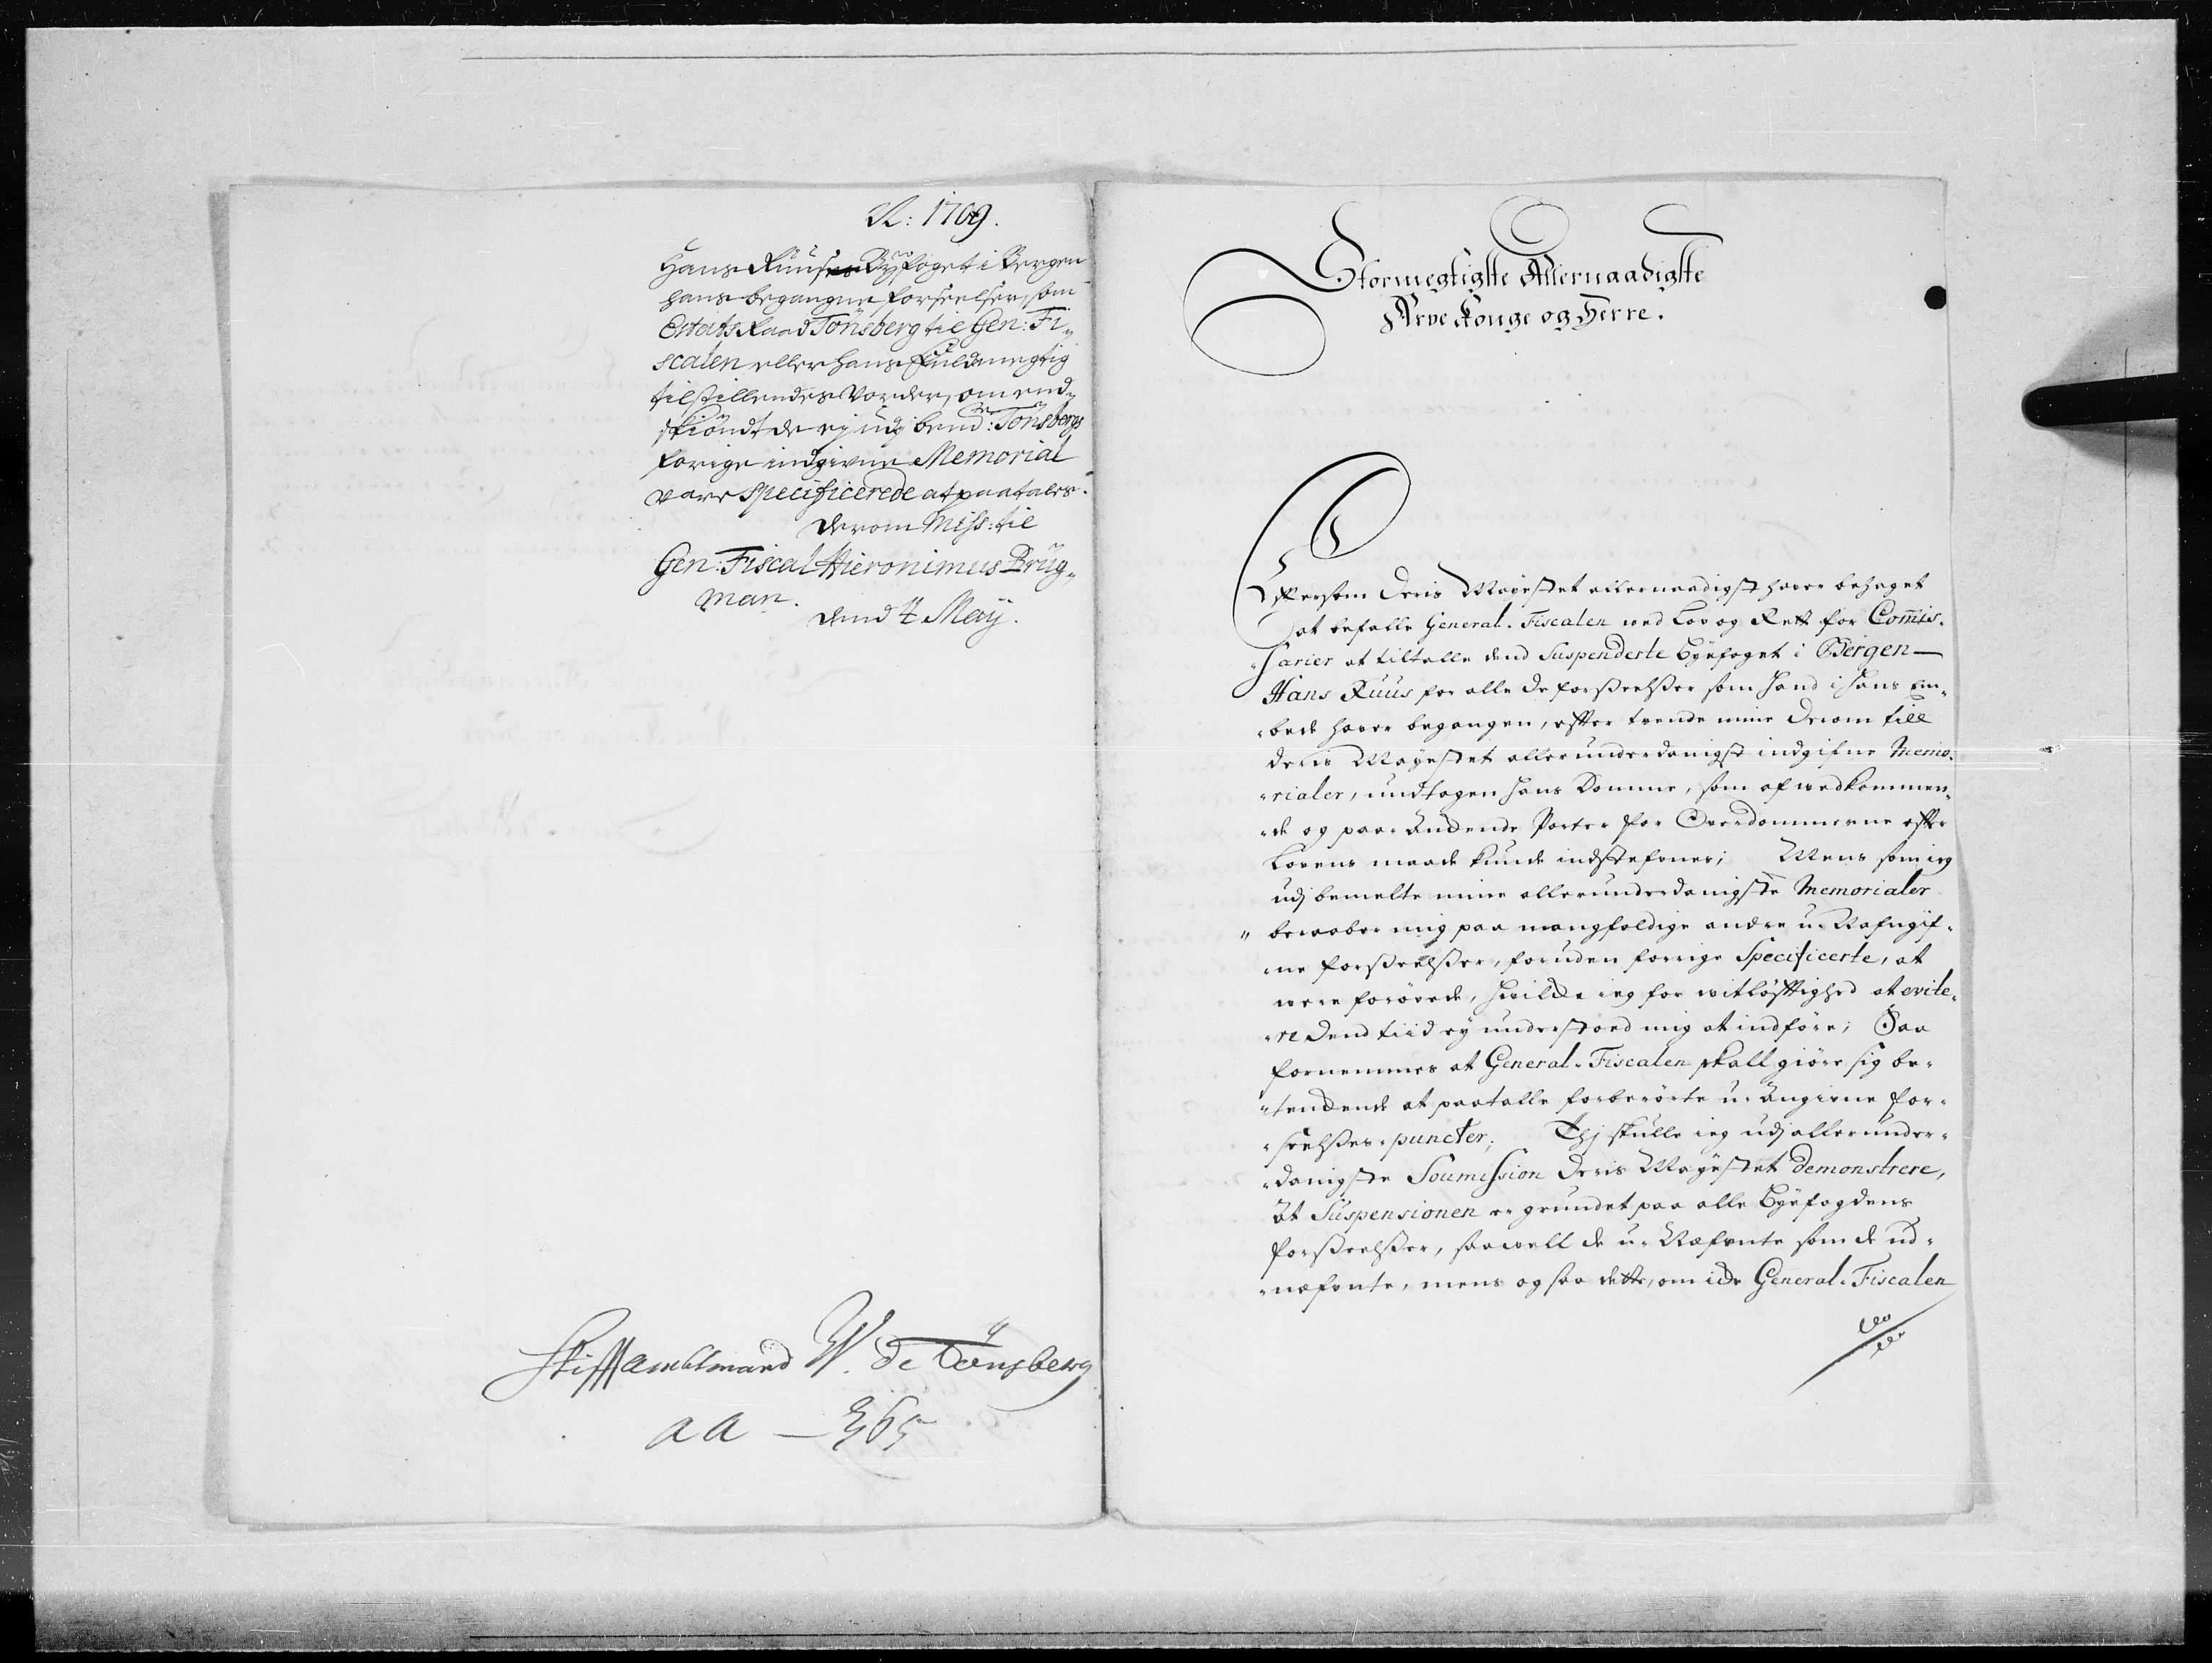 A: 1709.
Hans Ruus Byfoget i Bergen
hans begangne forseelser, som
Estats Raad Tönsberg til Gen: Fi-
scalen eller hans Fuldmegtig
tilstillendes vorder, omend-
skiöndt de ej udj bemd: Tönsbergs
forige indgivne Memorial
vare specificerede at paatales.
Derom Miss: til
Gen: Fiscal Hieronimus Brüg-
man.
dend 4 Maÿ.
Stifftambtmand W. de Tönsberg
aa - 365
Stormegtigste Allernaadigste
Arve Konge og Herre.
Eftersom Deris Mayestet allernaadigst hafver behaget
at befalle General-Fiscalen ved Lov og Rett for Com̄is-
sarier at tiltalle dend Suspenderte Byefoget i Bergen
Hans Ruus for alle de forseelsser som hand i hans Em-
bede hafver begangen, efter trende mine derom till
Deris Mayestet allerunderdanigst indgifne Memo-
rialer, undtagen hans Domme, som af vedkommen-
de og paa- Ankende Parter for Overdommerne efter
Lovens maade kunde indstefnes; Mens som ieg
udj bemelte mine allerunderdanigste Memorialer
beraaber mig paa mangfoldige andre u-Nafngif-
ne forseelsser, foruden forrige Specificerte, at
were forövede, hvilke ieg for vitlöfftighed at evite-
re dend tiid ey understoed mig at indföre; Saa
fornemmes at General-Fiscalen skall giöre sig be-
tenckende at paatalle forberörte u-Angivne for-
seelsses-puncter; Thj skulle ieg udj allerunder-
danigste Soumission Deris Mayestet demonstrere,
At Suspensionen er grundet paa alle Byefogdens
forseelsser, saavell de u-Nafnte som de ud-
nafnte, mens og saa dette, om icke General-Fiscalen